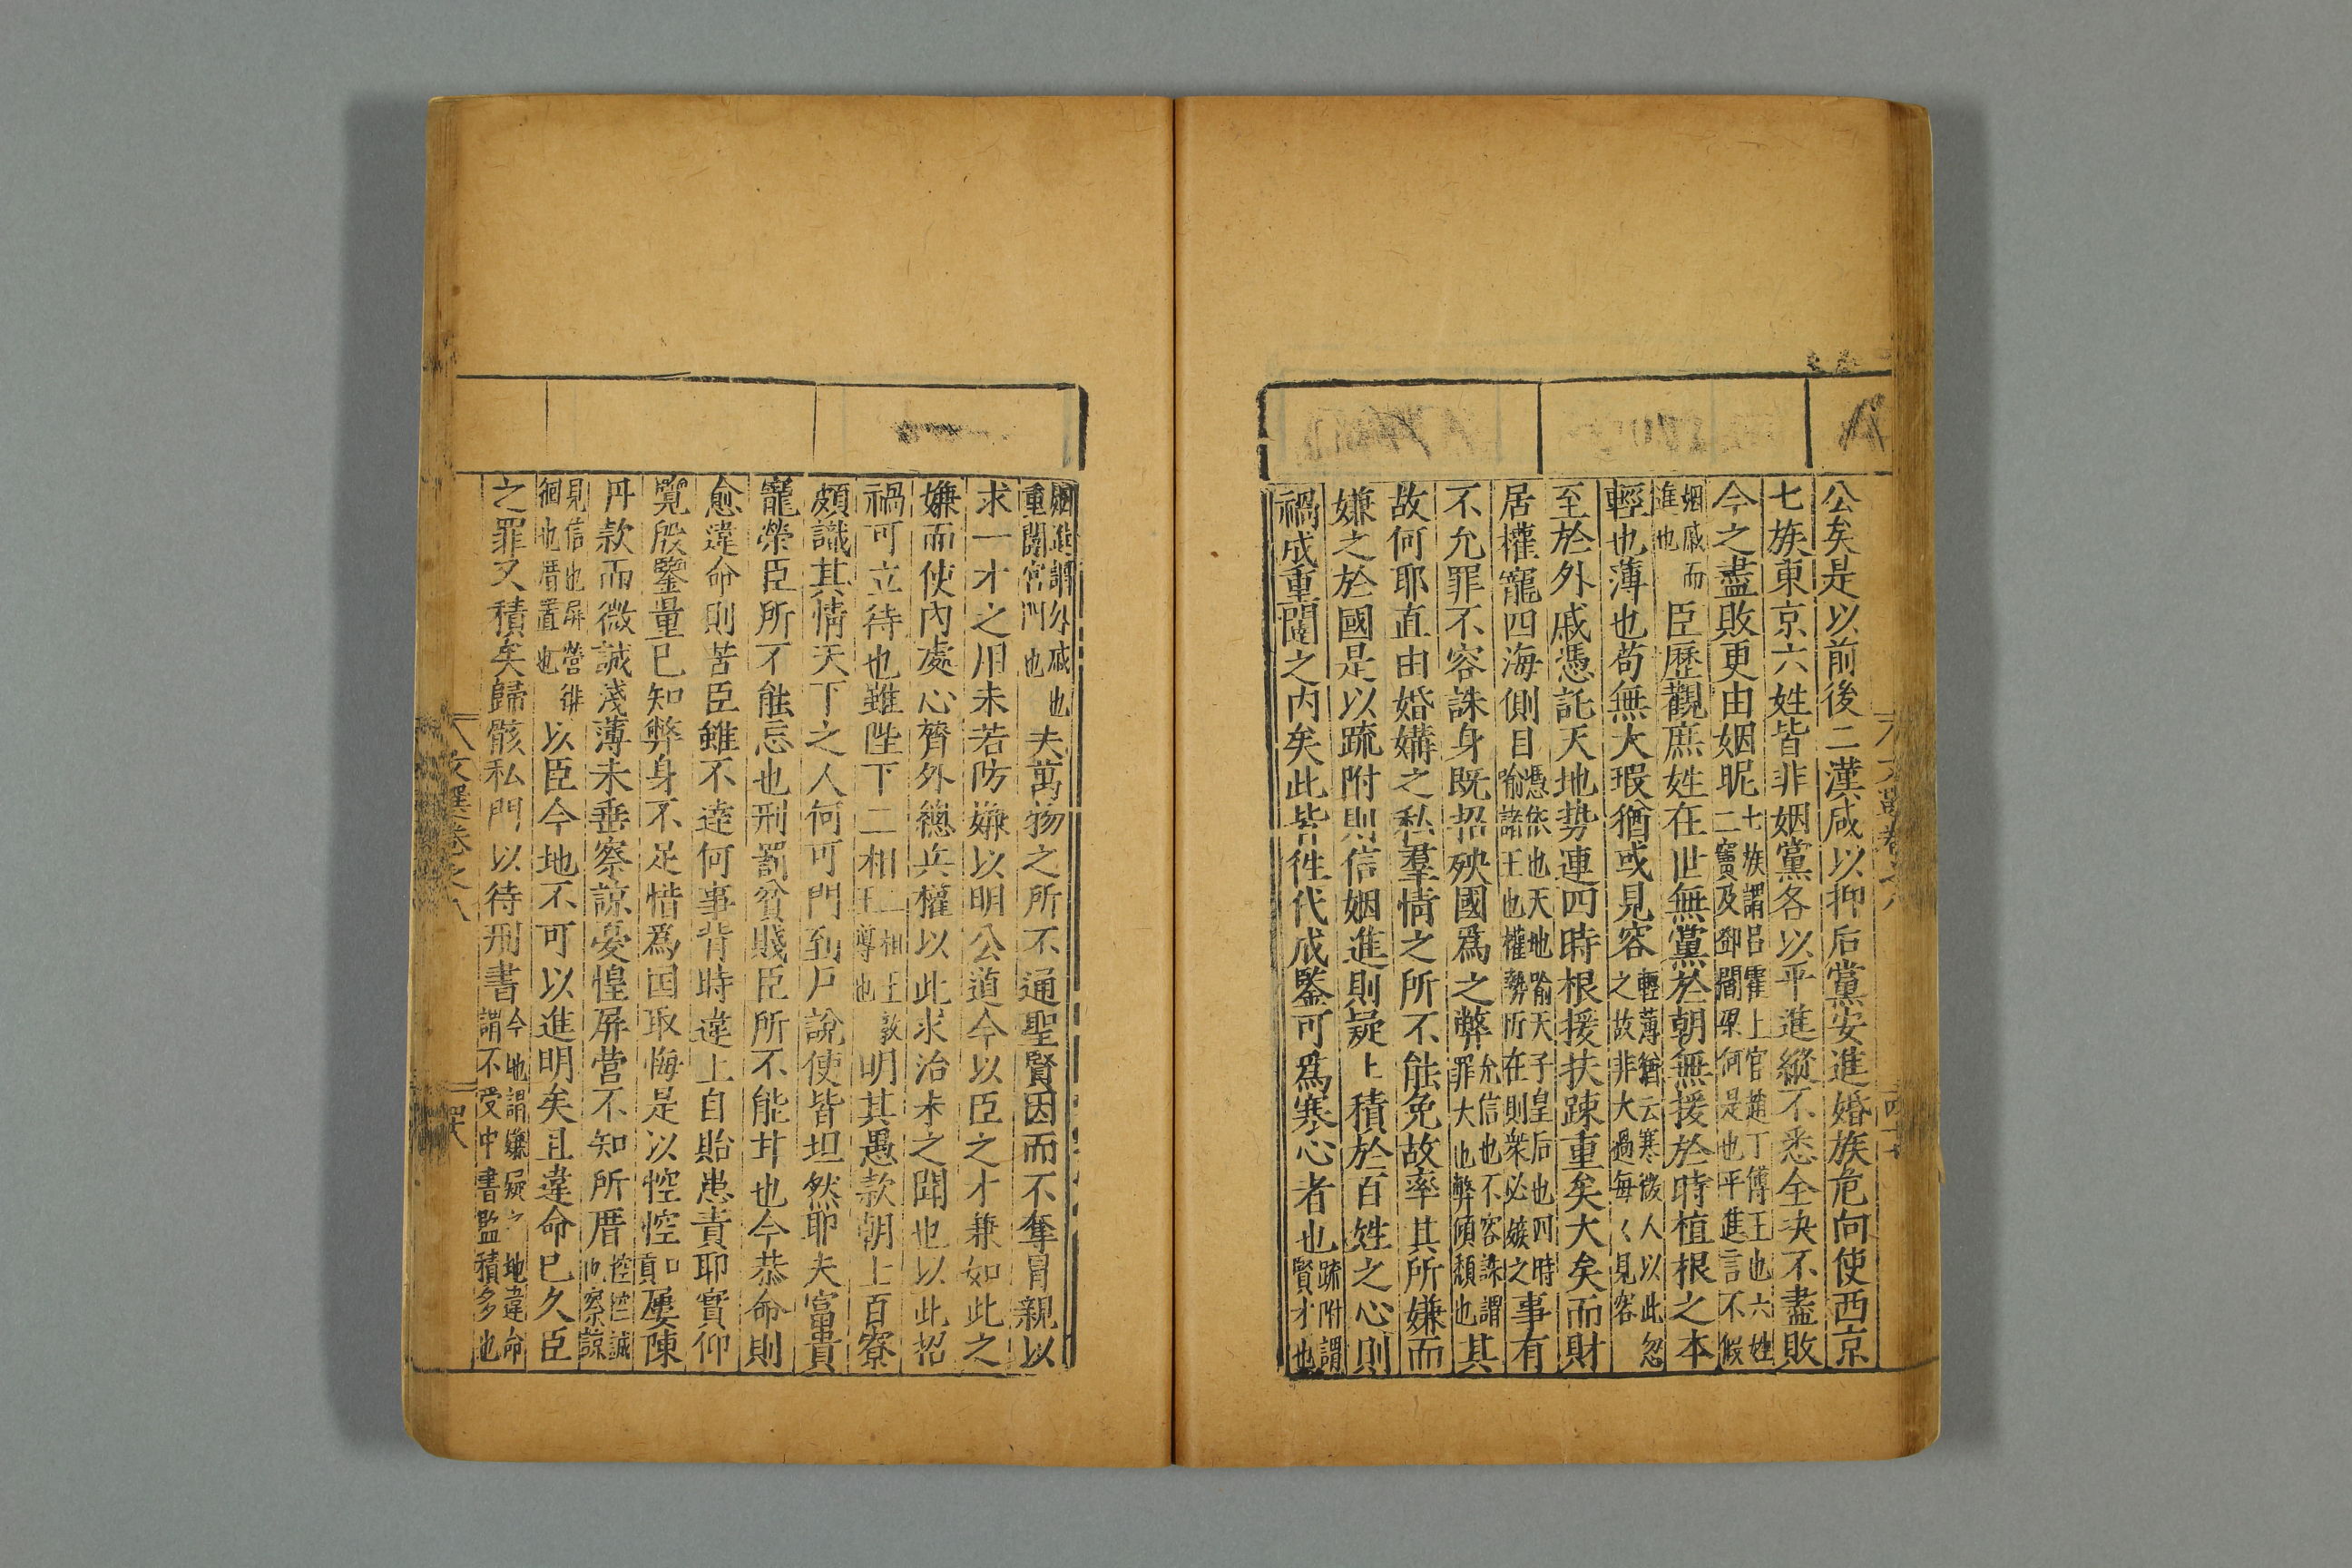 公矣是以前後二漢咸以抑后黨安進婚族危向使西京
七族東京六姓皆非姻黨各以平進縱不悉全決不盡敗
今之盡敗更由姻昵七族謂呂霍上官趙丁傅王也六姓二竇及鄧閻梁何是也平進言不假
姻戚而進也臣歷觀庶姓在世無黨於朝無援於時植根之本
輕也薄也苟無大瑕猶或見容輕薄猶云寒微人以此忽之故非大過每〻見容
至於外戚憑託天地勢連四時根援扶疎重矣大矣而財
居權寵四海側目憑依也天地喻天子皇后也四時喻諸王也權勢所在則衆必嫉之事有
不允罪不容誅身既招殃國爲之弊允信也不容誅謂罪大也弊傾頽也其
故何耶直由婚媾之私羣情之所不能免故率其所嫌而
嫌之於國是以疏附則信姻進則疑上積於百姓之心則
禍成重闥之內矣此皆徃代成鑒可爲寒心者也疏附謂賢才也
姻進謂外戚也重闥宮門也夫萬物之所不通聖賢因而不奪冒親以
求一才之用未若防嫌以明公道今以臣之才兼如此之
嫌而使內處心膂外總兵權以此求治未之聞也以此招
禍可立待也雖陛下二相二相王敦王導也明其愚款朝上百寮
頗識其情天下之人何可門到戶說使皆坦然耶夫富貴
寵榮臣所不能忘也刑罰貧賤臣所不能甘也今恭命則
愈違命則苦臣雖不達何事背時違上自貽患責耶實仰
覽殷鑒量已知弊身不足惜爲国取悔是以悾悾屢陳
丹款而微誠淺薄未垂察諒憂惶屏營不知所厝悾悾誠也察諒
見信也屏營徘徊也厝置也以臣今地不可以進明矣且違命已久臣
之罪又積矣歸骸私門以待刑書今地謂嫌疑之地違命謂不受中書監積多也
文選卷之八